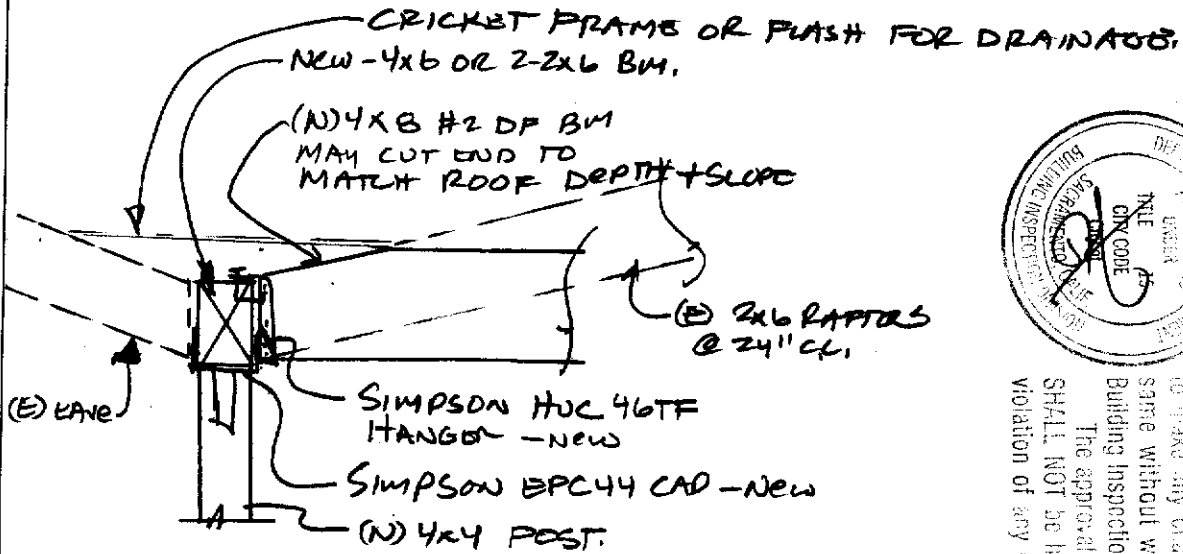 CRICKET FRAME OR FLASH FOR DRAINAGE.
NEW - 4x6 OR 2-2x6 BM.
(N) 4x8 #2 DF BM
MAY CUT END TO
MATCH ROOF DEPTH + SLOPE
(E) 2x6 RAFTERS
@ 24" CC.
(E) EAVE
SIMPSON HUC 46TF
HANGER - NEW
SIMPSON EPC44 CAP - NEW
(N) 4x4 POST.
UNDER
TITLE 15
CITY CODE
SACRAMENTO, CALIF
BUILDING INSPECTION
same without
Building Inspection
The approval
SHALL NOT be
violation of any